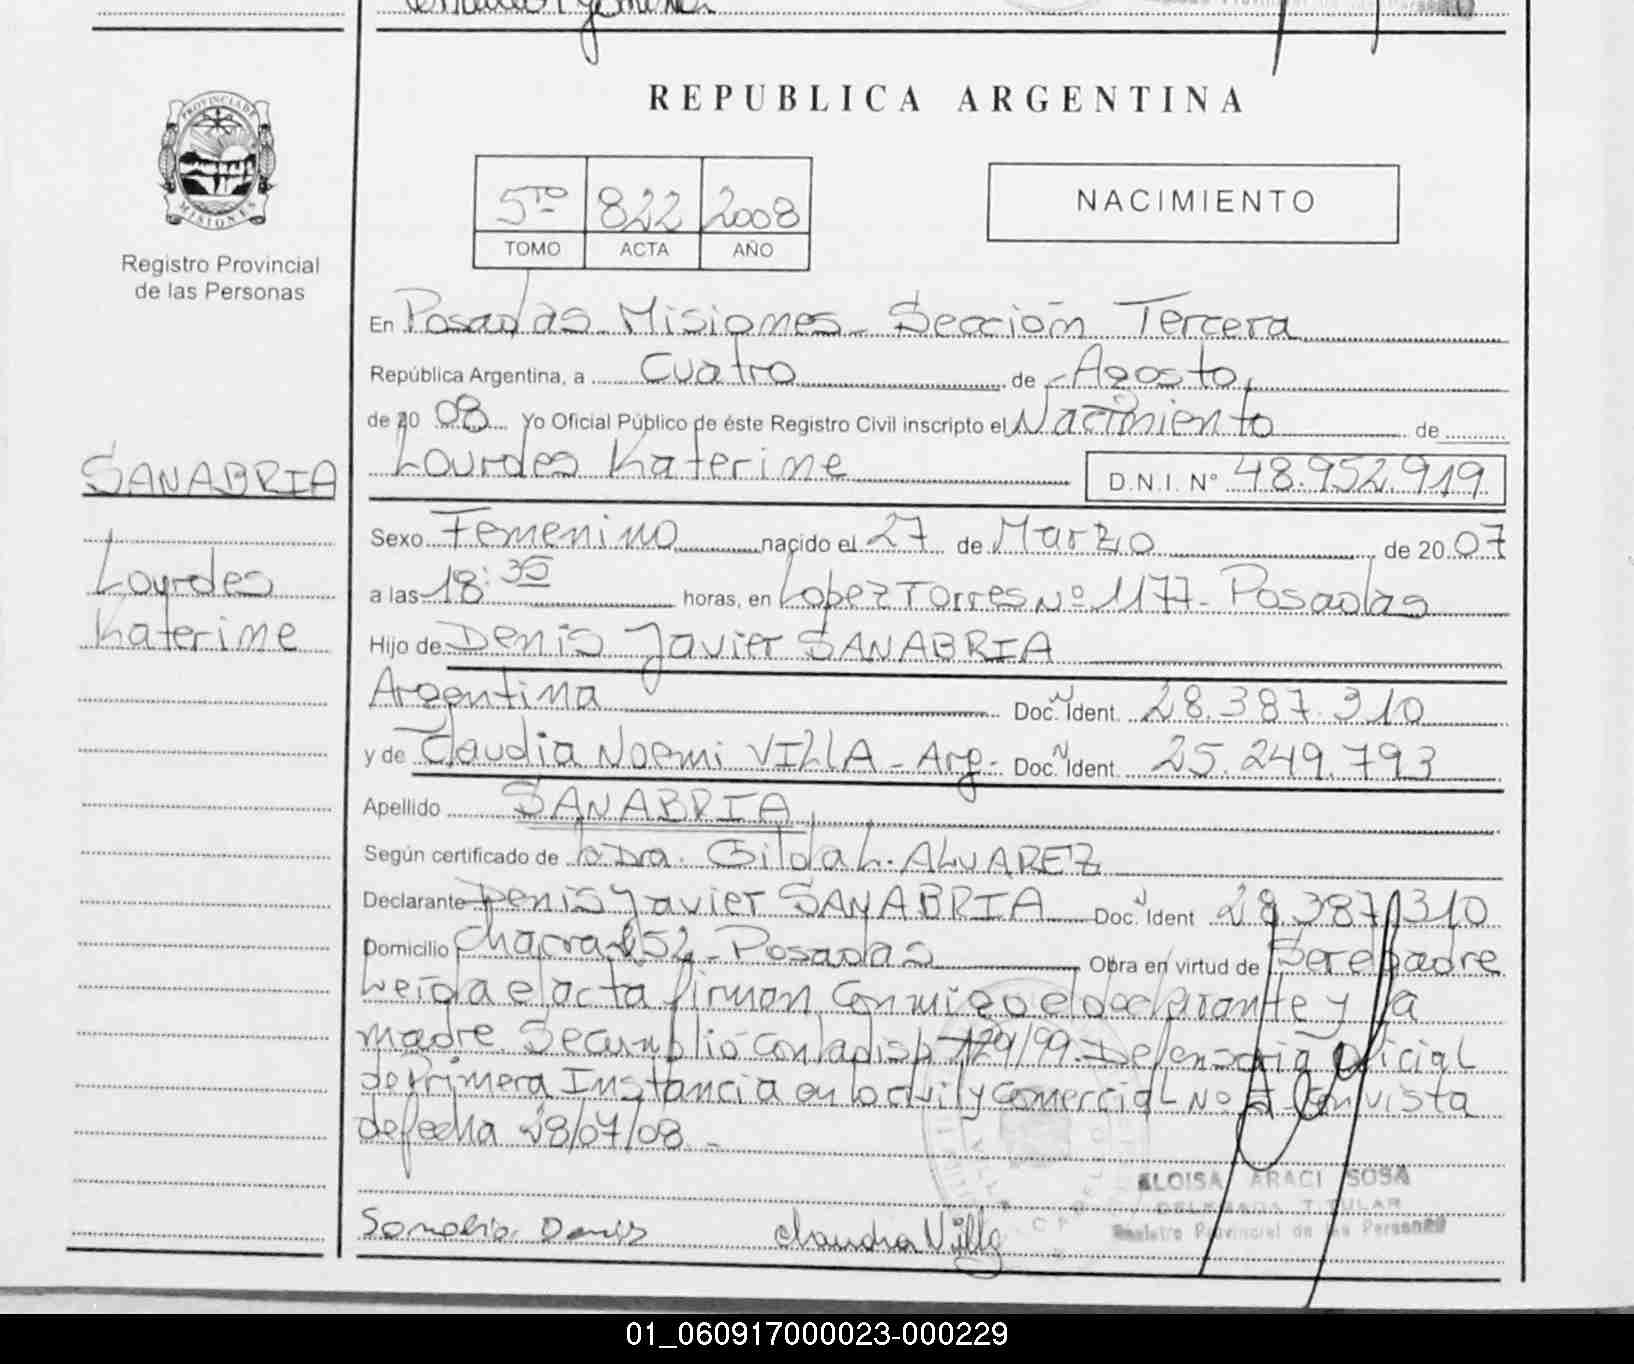 REPUBLICA ARGENTINA
PROVINCIA DE
MISIONES
Registro Provincial
de las Personas
5to 822 2008
TOMO ACTA AÑO
NACIMIENTO
En Posadas Misiones - Sección Tercera
República Argentina, a Cuatro de Agosto
de 20 08 Yo Oficial Público de éste Registro Civil inscripto el Nacimiento de
Lourdes Katerine D.N.I. N° 48.952.919
SANABRIA
Lourdes
Katerine
Sexo Femenino nacido el 27 de Marzo de 20 07
a las 18:35 horas, en Lopez Torres Nº 1177 - Posadas
Hijo de Denis Javier SANABRIA
Argentina Doc. Ident. 28.387.310
y de Claudia Noemi VILLA - Arg - Doc. Ident. 25.249.793
Apellido SANABRIA
Según certificado de la Dra. Gilda L. ALVAREZ
Declarante Denis Javier SANABRIA Doc. Ident 28.387.310
Domicilio Chacra 152 - Posadas Obra en virtud de Ser el padre
Leída el acta firman conmigo el declarante y la
madre. Se cumplió con la disp 129/99. Defensoria Oficial
de Primera Instancia en lo civil y Comercial Nº Con vista
de fecha 28/07/08. -
ELOISA ARACI SOSA
DELEGADA TITULAR
Registro Provincial de las Personas
Denis Claudia Villa
01_060917000023-000229